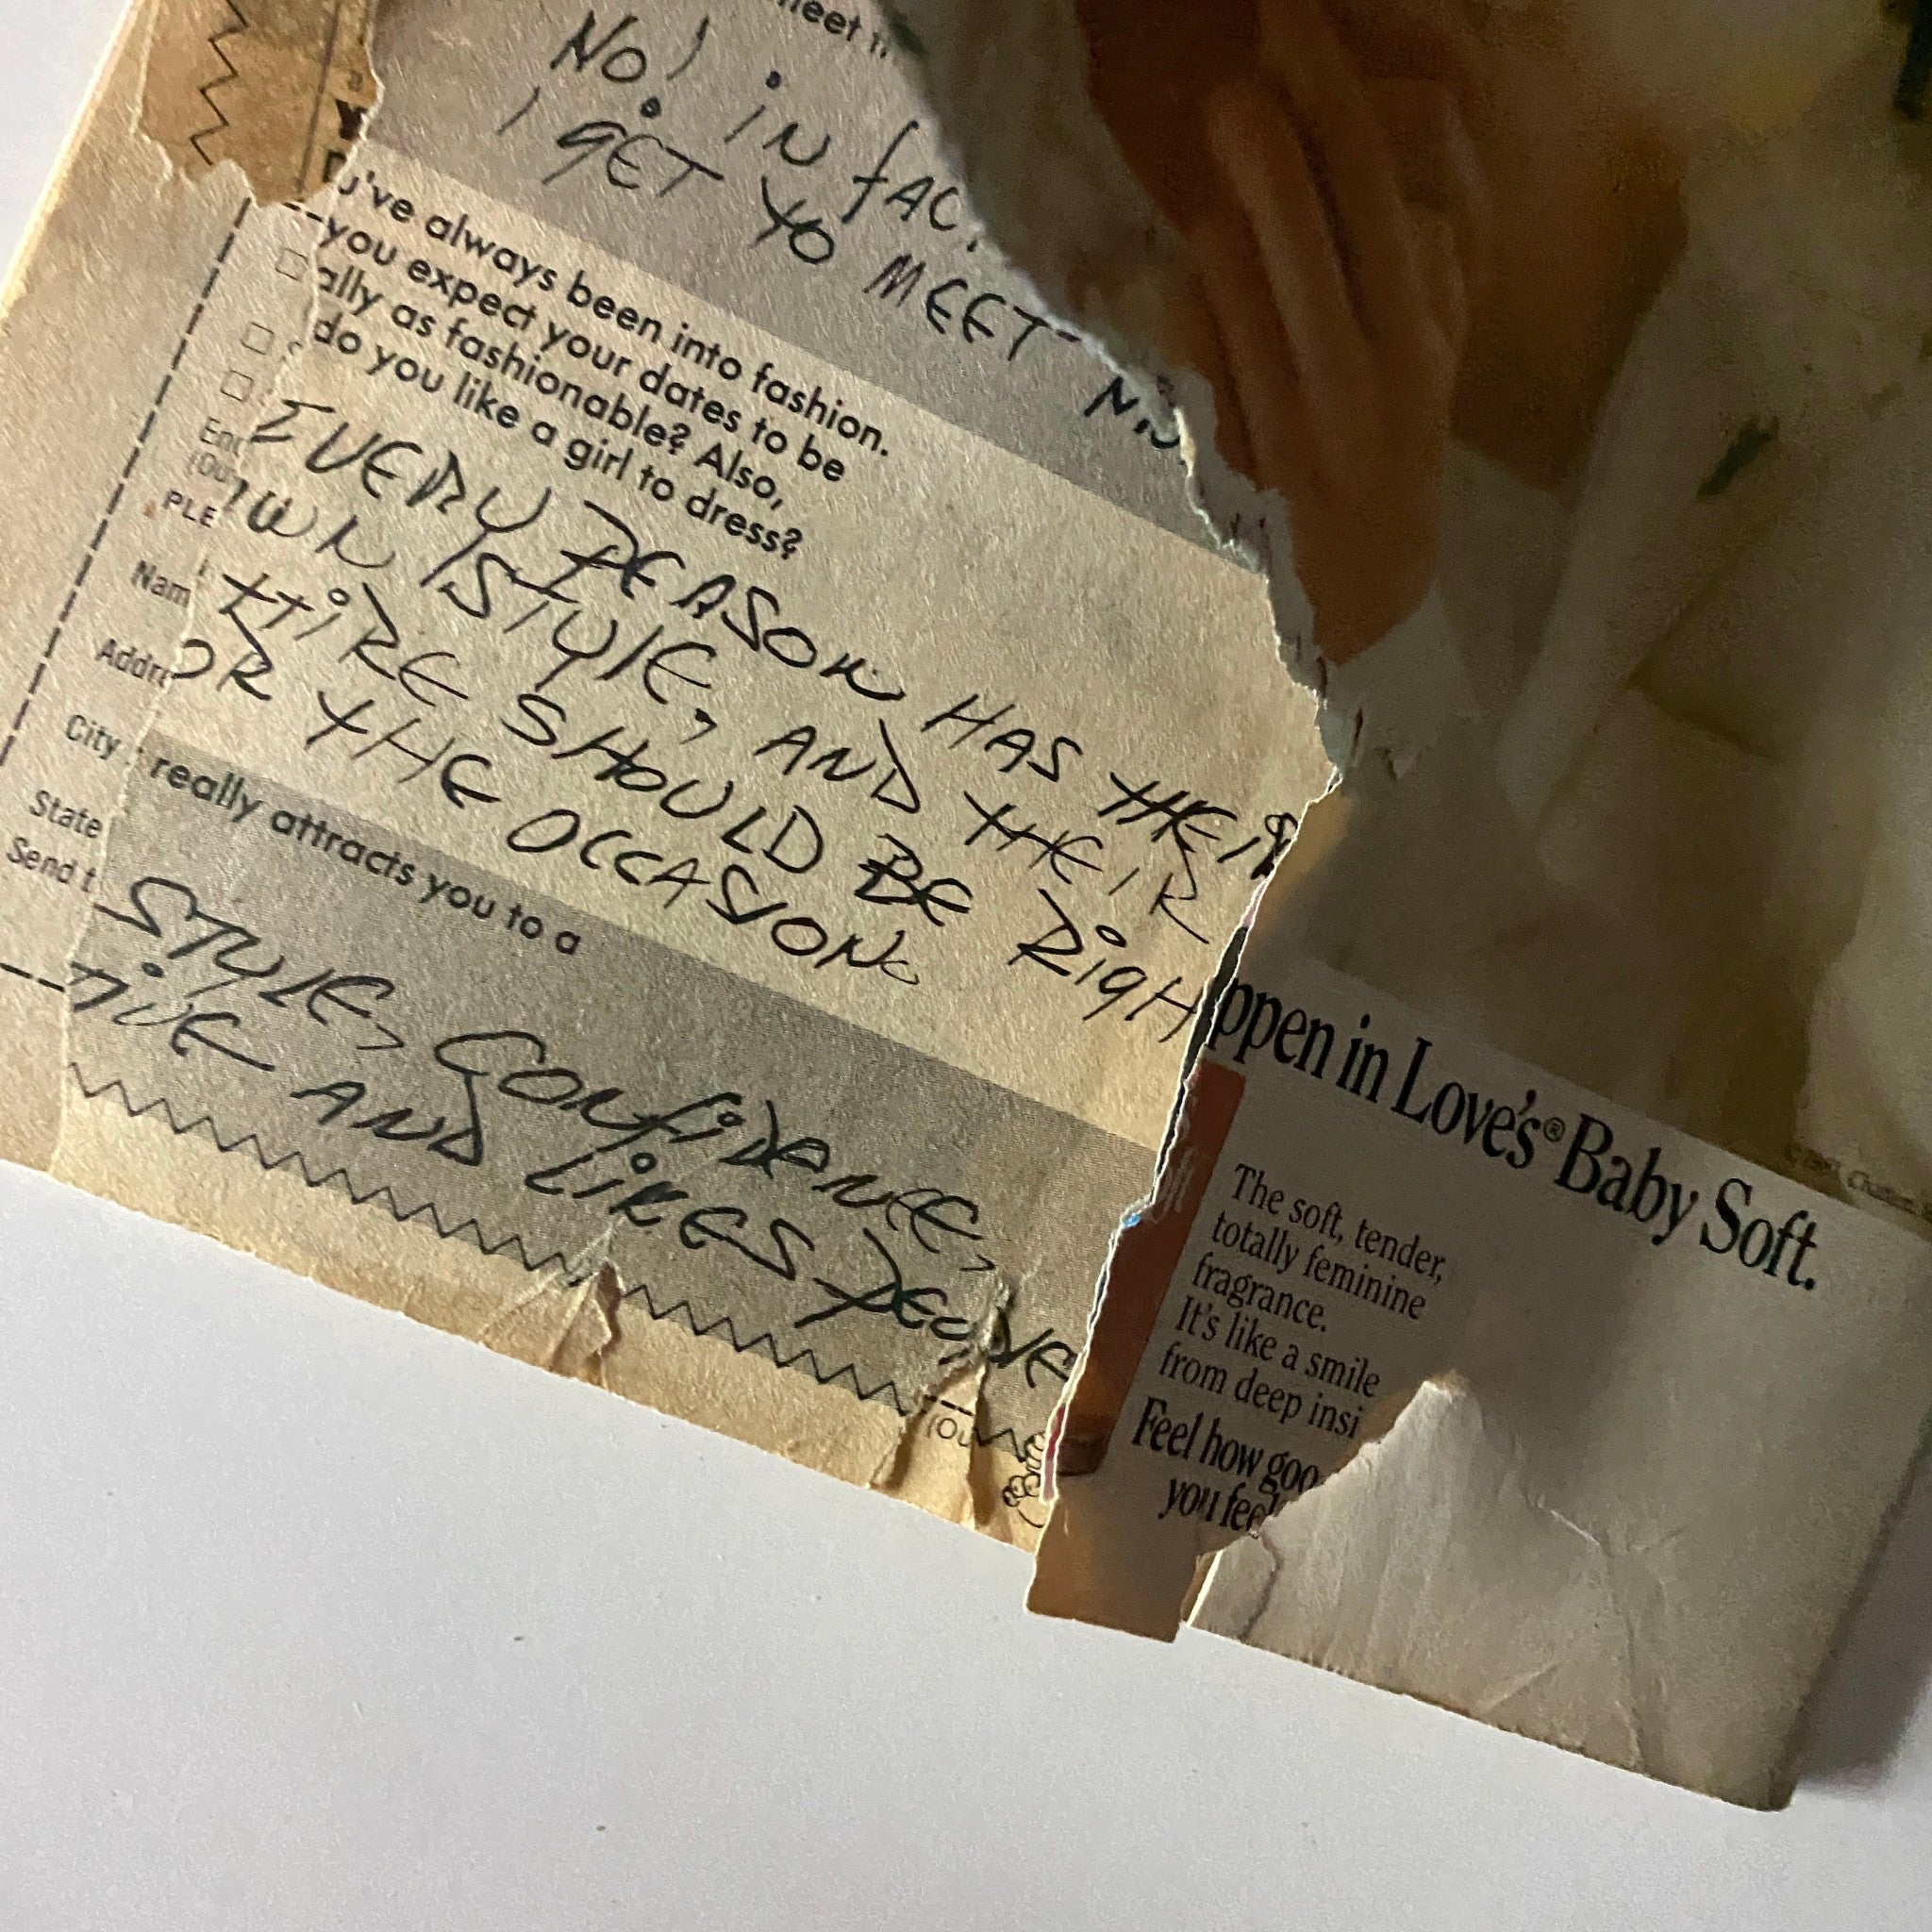 No! in fac
I GET TO MEET
've always been into fashion.
you expect your dates to be
ally as fashionable? Also,
do you like a girl to dress?
EVERY PERSON HAS THEIR
OWN STYLE, AND THEIR
TTIRE SHOULD BE RiGH
OR THE OCCASION.
really attracts you to a
STYLE, CONfiDENCE,
TIVE AND LiKES PEOPLE
PLE
Nam
Addre
City
State
Send t
(Ou
ppen in Love's® Baby Soft.
The soft, tender,
totally feminine
fragrance.
It's like a smile
from deep insi
Feel how goo
you feel